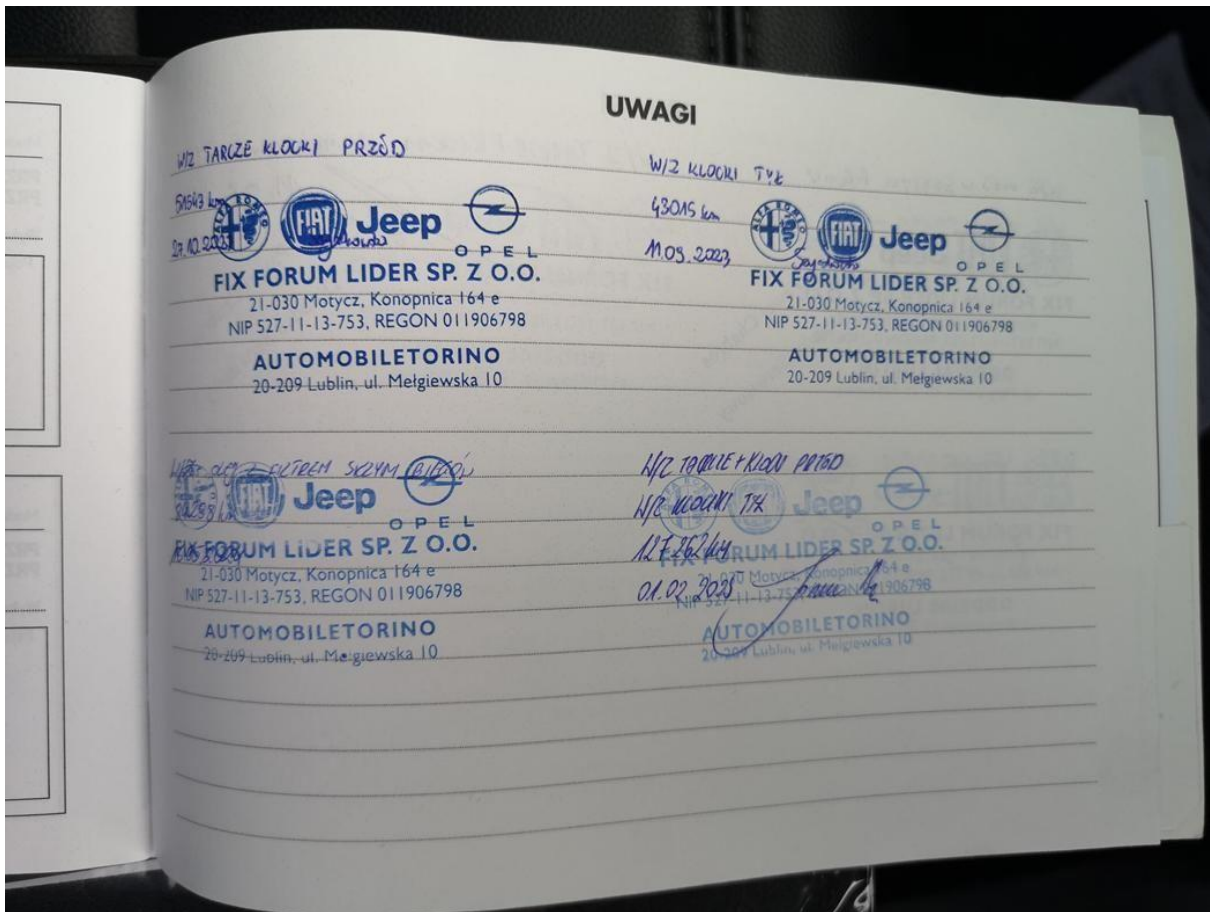 UWAGI
W/Z TARCZE KLOCKI PRZÓD
51543 km
27.10.2023
ALFA ROMEO
FIAT
Jeep
OPEL
FIX FORUM LIDER SP. Z O.O.
21-030 Motycz, Konopnica 164 e
NIP 527-11-13-753, REGON 011906798
AUTOMOBILETORINO
20-209 Lublin, ul. Mełgiewska 10
W/Z KLOCKI TYŁ
43015 km
11.09.2023
ALFA ROMEO
FIAT
Jeep
OPEL
FIX FORUM LIDER SP. Z O.O.
21-030 Motycz, Konopnica 164 e
NIP 527-11-13-753, REGON 011906798
AUTOMOBILETORINO
20-209 Lublin, ul. Mełgiewska 10
OLEJ Z FILTREM SKRZYNI BIEGÓW
FIAT
Jeep
OPEL
FIX FORUM LIDER SP. Z O.O.
21-030 Motycz, Konopnica 164 e
NIP 527-11-13-753, REGON 011906798
AUTOMOBILETORINO
20-209 Lublin, ul. Mełgiewska 10
W/Z TARCZE + KLOCKI PRZÓD
W/Z KLOCKI TYŁ
127262 km
01.02.2025
FIAT
Jeep
OPEL
FIX FORUM LIDER SP. Z O.O.
21-030 Motycz, Konopnica 164 e
NIP 527-11-13-753, REGON 011906798
AUTOMOBILETORINO
20-209 Lublin, ul. Mełgiewska 10